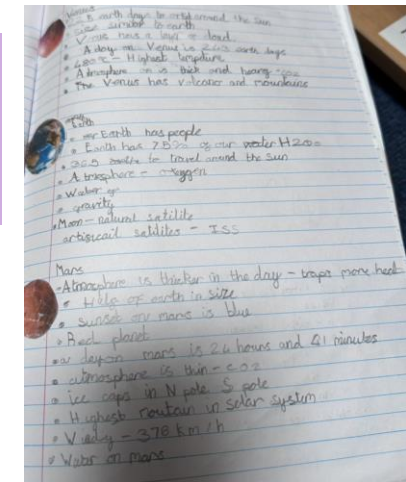 Venus
8 earth days to orbit around the Sun
size similar to earth
Venus has a
A day on Venus is 243 earth days
480°C - Highest tempiture
Atmosphere is thick and heavy - co2
The Venus has volcanos and mountains
Earth
Earth has people
Earth has 75% of our water H20
365 to travel around the Sun
Atmosphere - oxygen
Water
gravity
Moon - natural satilite
satilites - ISS
Mars
Atmosphere is thicker in the day - traps more heat
Half of earth in size
sunset on mars is blue
Red planet
a day on mars is 24 hours and 41 minutes
atmosphere is thin - co2
ice caps in N pole S pole
Highest moutain in solar system
Windy - 378 km/h
on mars